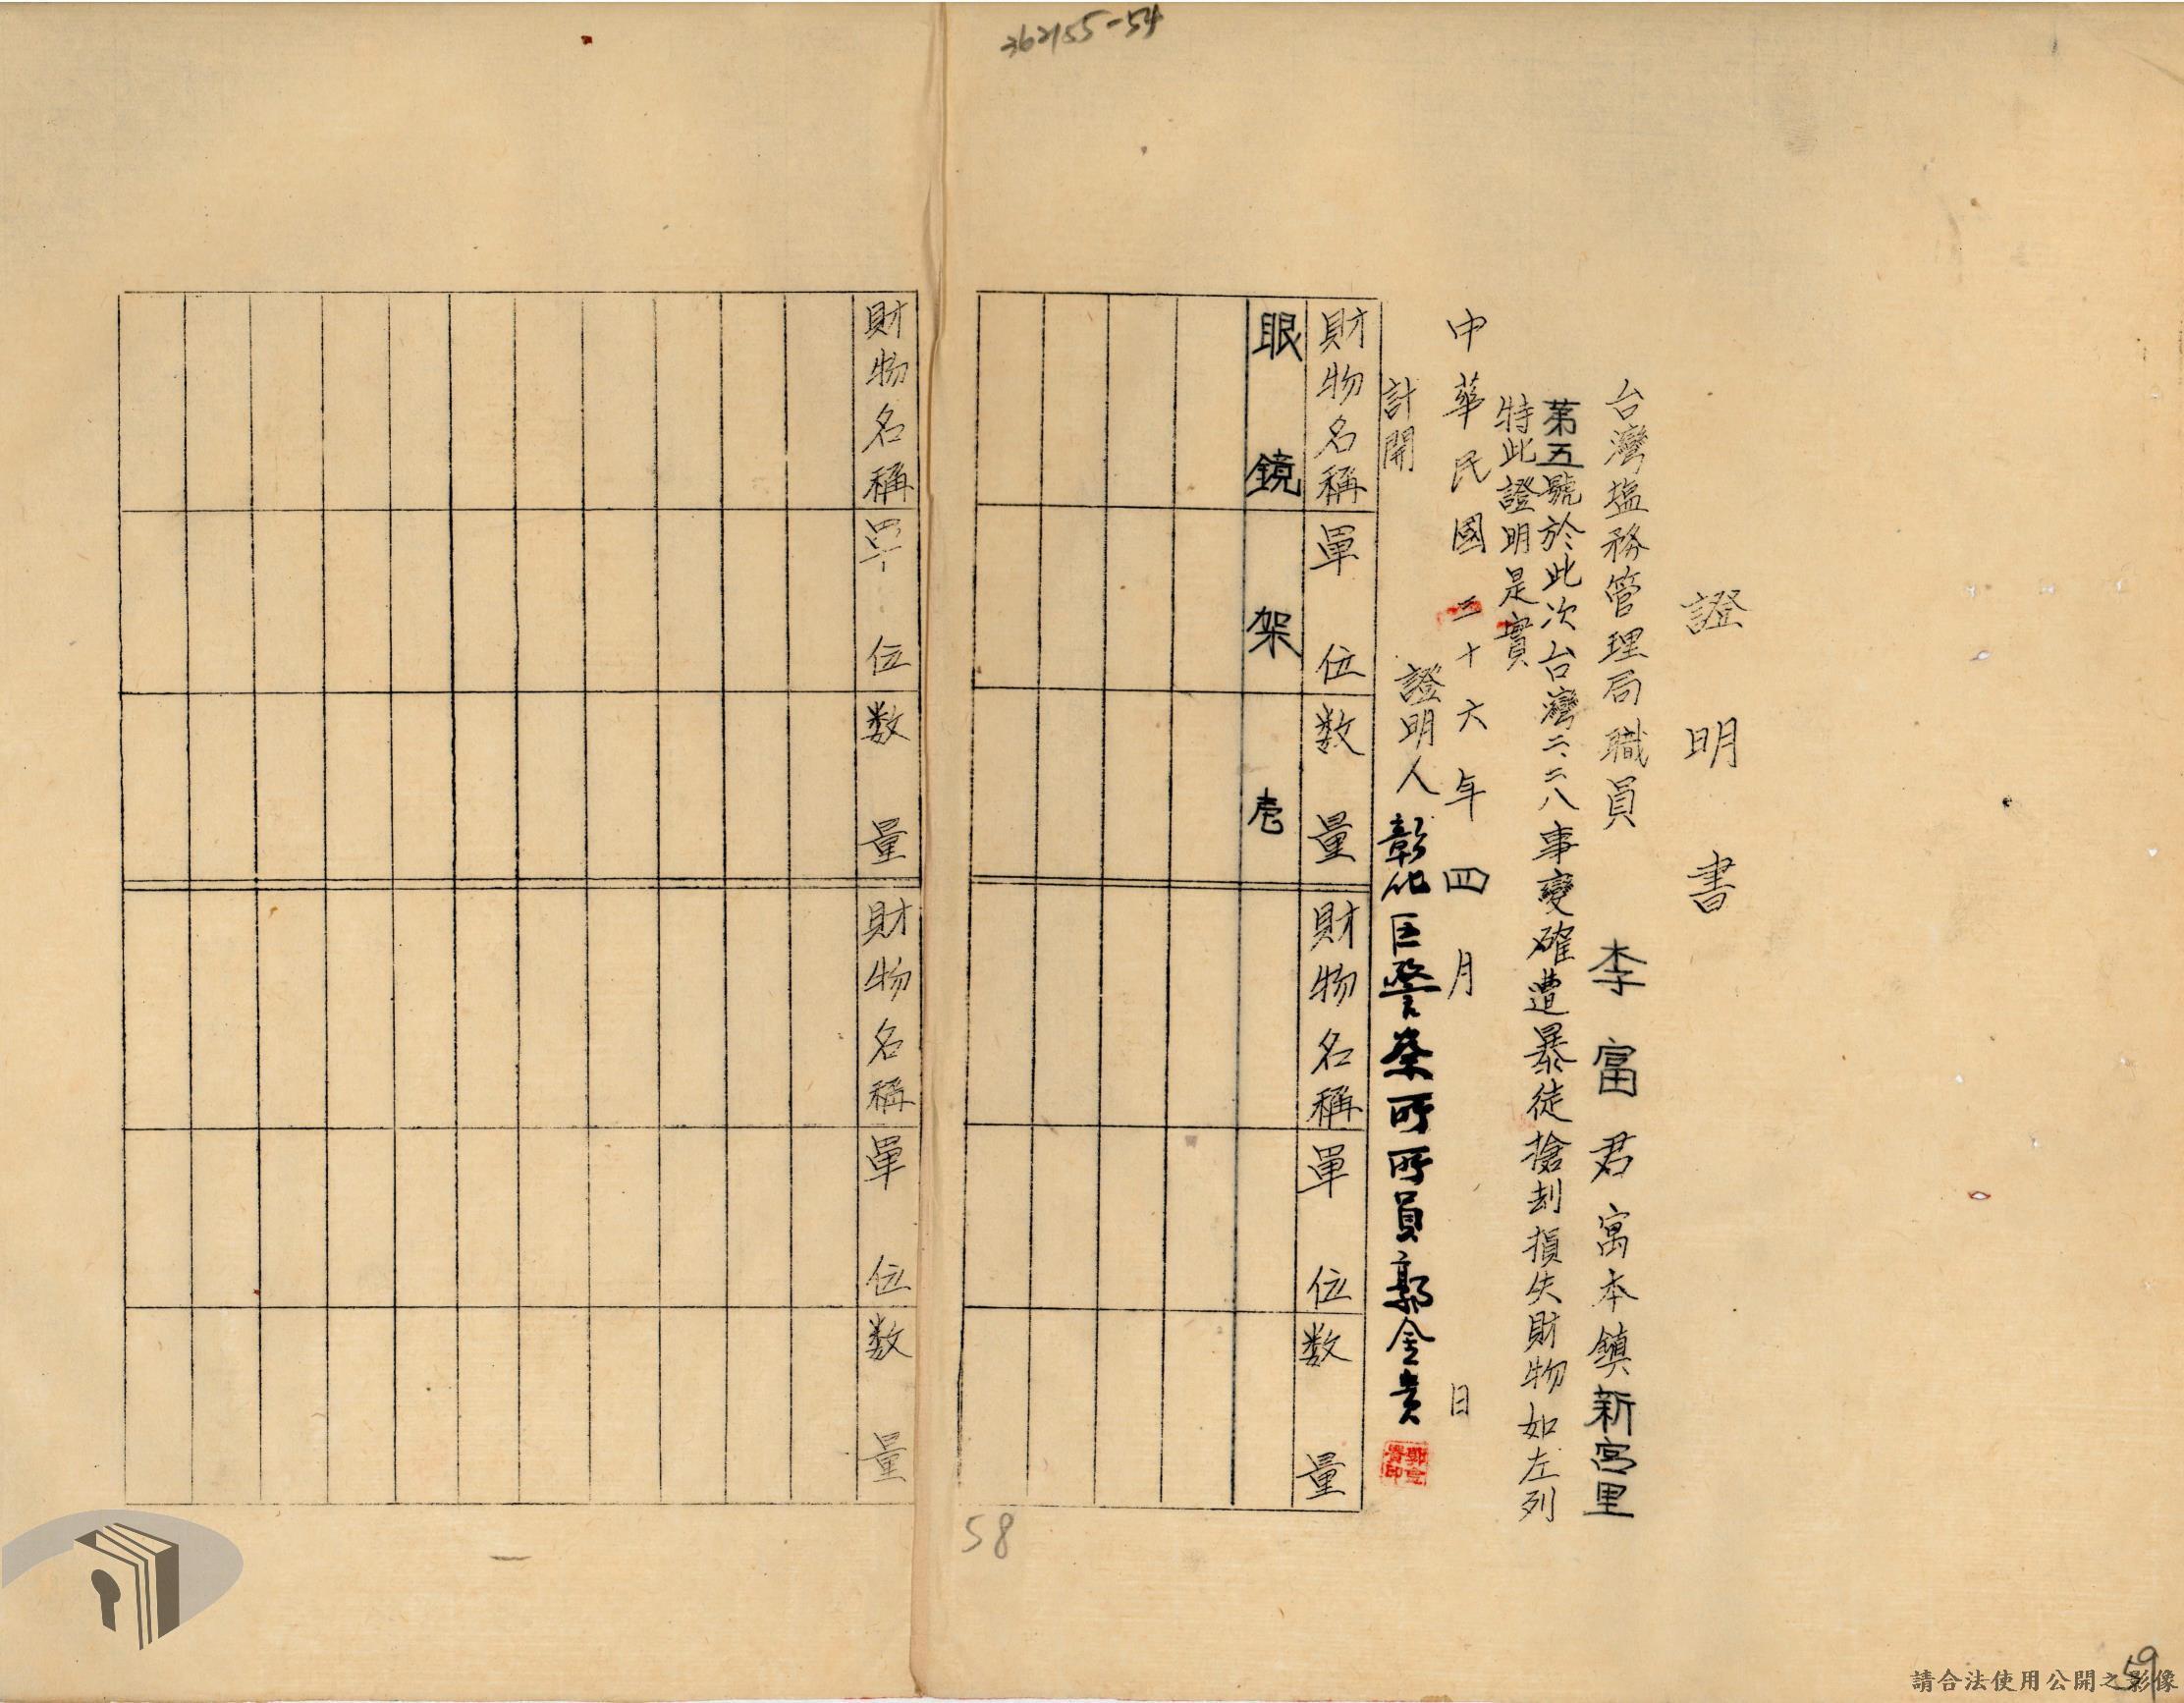 362155-54
證明書
台灣塩務管理局職員李富君寓本鎮新宮里
第五號於此次台灣二、二八事變確遭暴徒搶刦損失財物如左列
特此證明是實
中華民國三十六年四月 日
證明人彰化區警察所所員郭金貴
計開
財物名稱 單位 数量 財物名稱 單位 数量
眼鏡 架 壱
財物名稱 單位 数量 財物名稱 單位 数量
58
59
請合法使用公開之影像